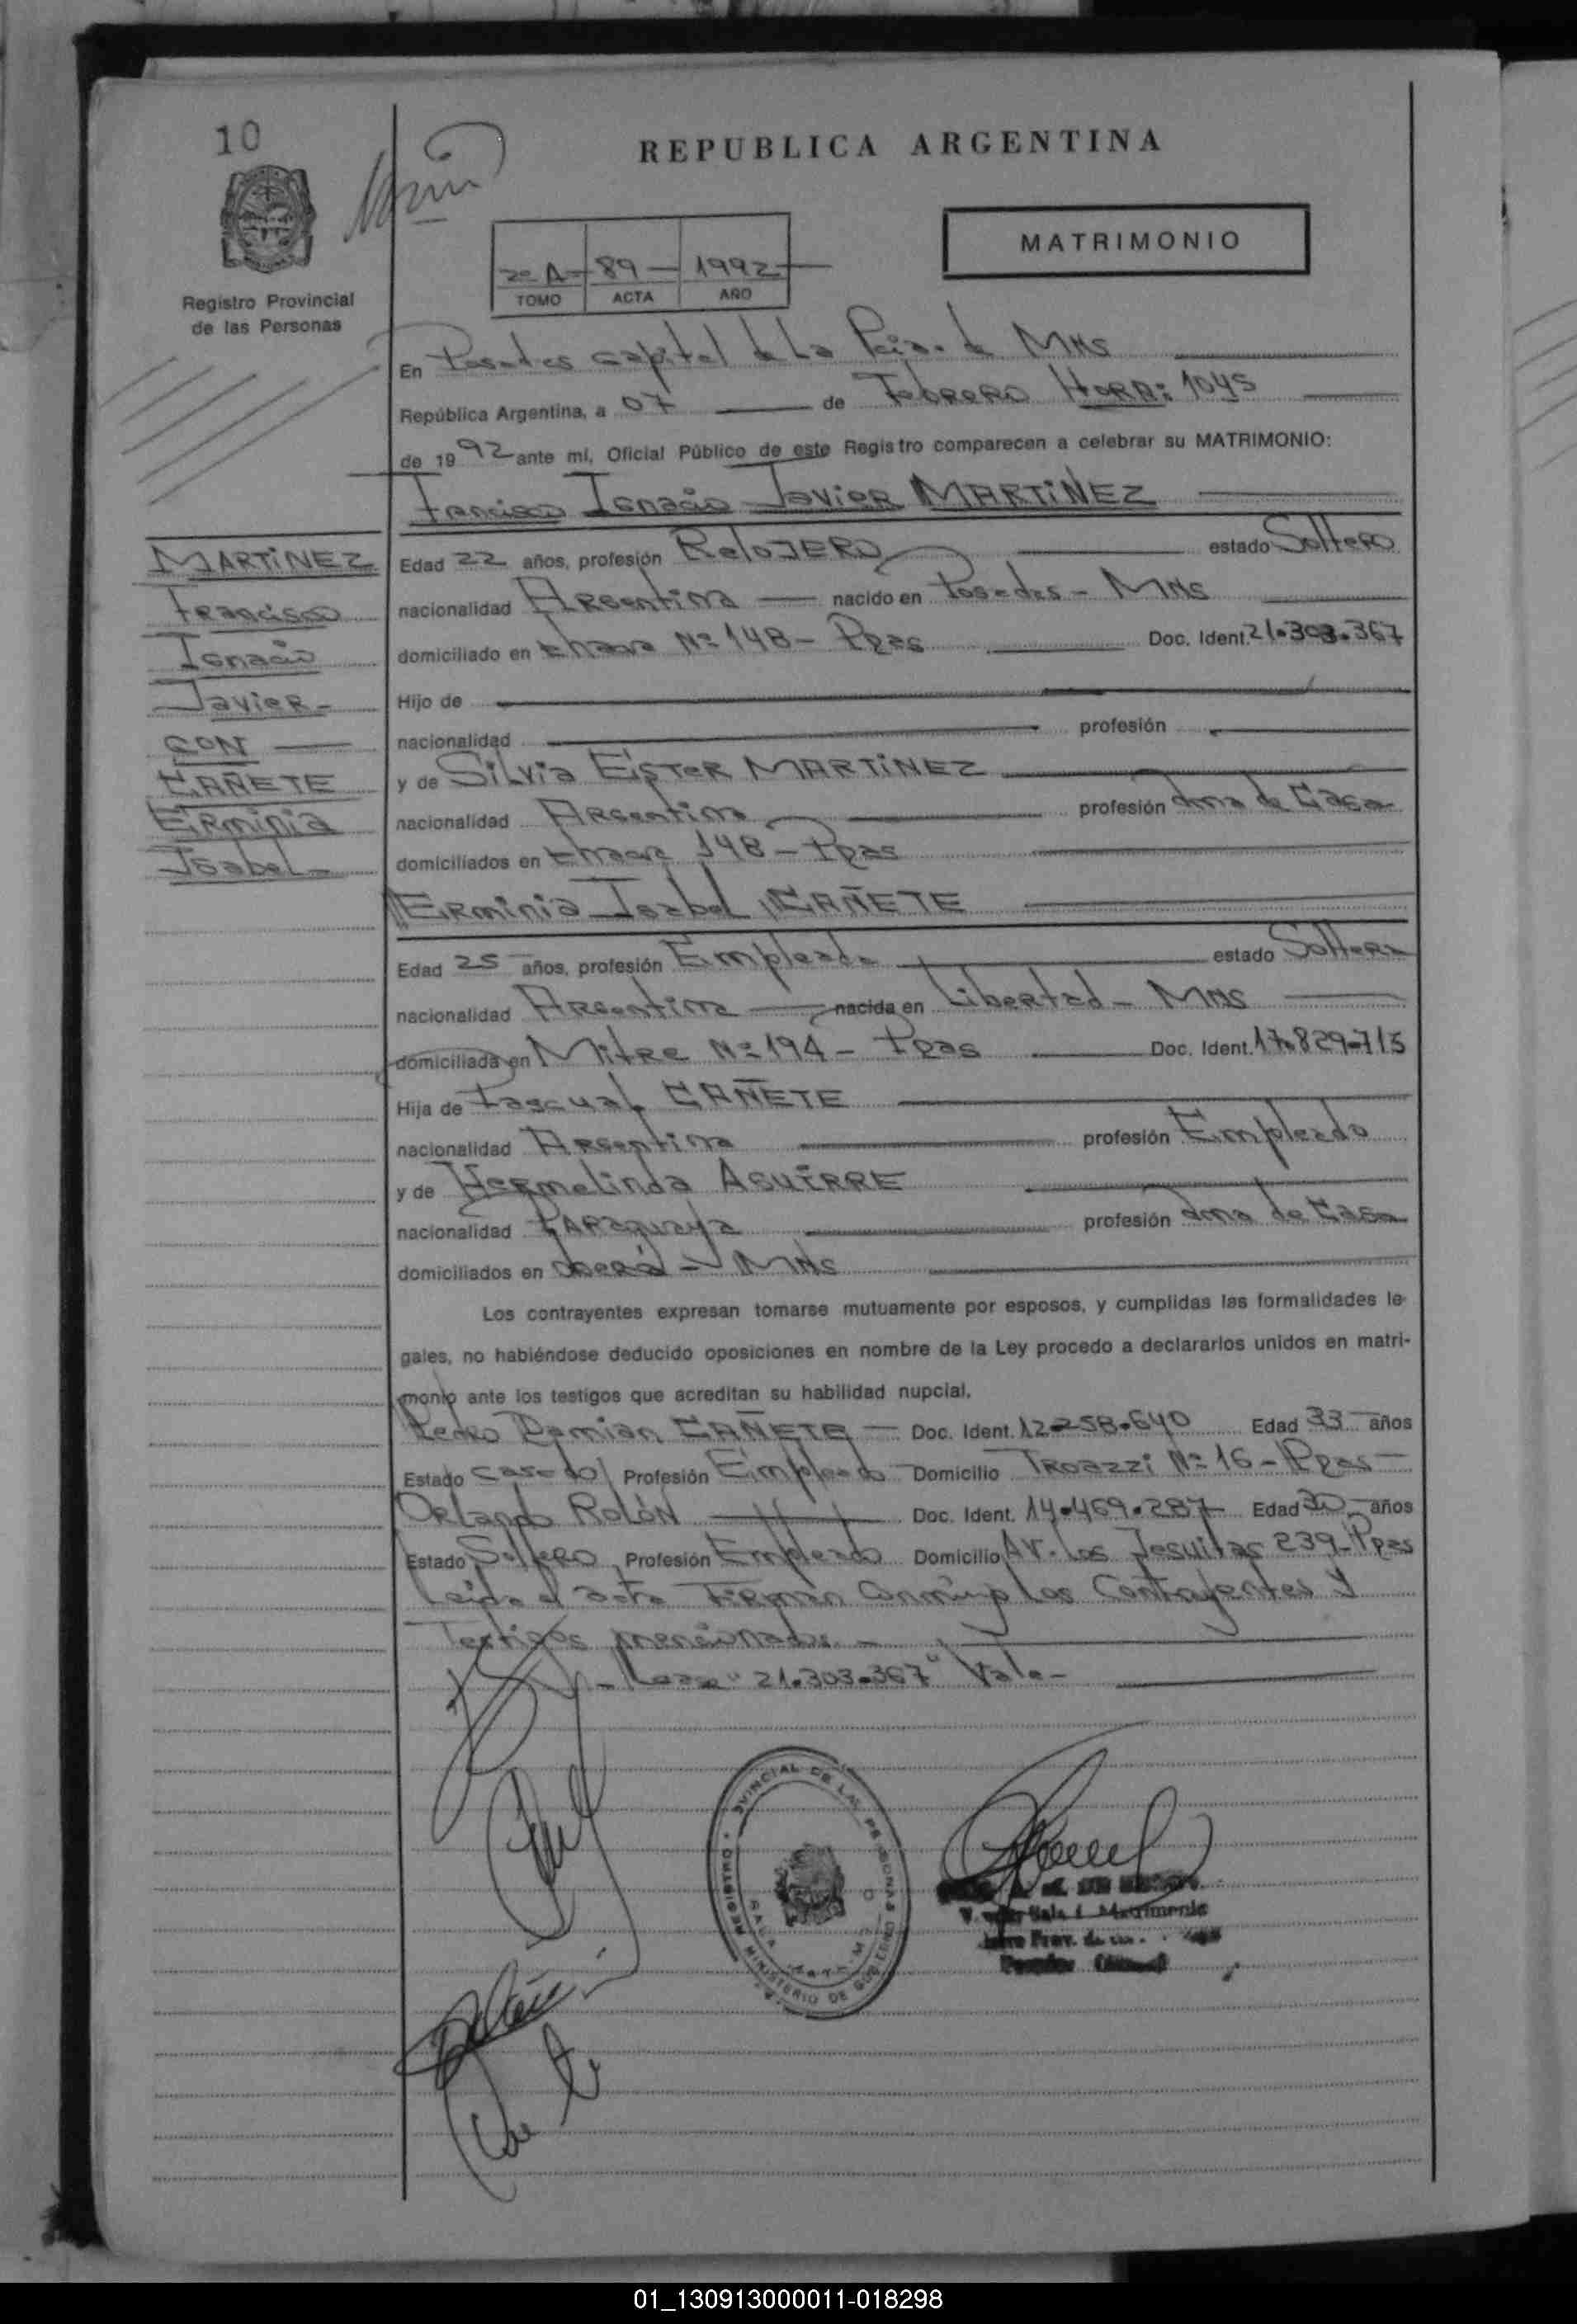 10
REPUBLICA ARGENTINA
MATRIMONIO
2º A - 89 - 1992
TOMO ACTA AÑO
Registro Provincial
de las Personas
En Posadas capital de La Pcia. de MNS
República Argentina, a 07 de Febrero HORA: 1045
de 1992 ante mí, Oficial Público de este Registro comparecen a celebrar su MATRIMONIO:
Francisco Ignacio Javier MARTINEZ
MARTINEZ
Francisco
Ignacio
Javier-
CON
CAÑETE
Erminia
Isabel-
Edad 22 años, profesión RELOJERO estado Soltero
nacionalidad Argentina nacido en Posadas - MNS
domiciliado en Chacra Nº 148 - Ppas Doc. Ident. 21.303.367
Hijo de
nacionalidad profesión
y de Silvia Ester MARTINEZ
nacionalidad Argentina profesión Ama de Casa
domiciliados en Chacra 148 - Ppas
Erminia Isabel CAÑETE
Edad 25 años, profesión Empleada estado Soltera
nacionalidad Argentina nacida en Libertad - MNS
domiciliada en Mitre Nº 194 - Ppas Doc. Ident. 17.829.715
Hija de Pascual CAÑETE
nacionalidad Argentina profesión Empleado
y de Hermelinda AGUIRRE
nacionalidad PARAguaya profesión Ama de Casa
domiciliados en Oberá - MNS
Los contrayentes expresan tomarse mutuamente por esposos, y cumplidas las formalidades le-
gales, no habiéndose deducido oposiciones en nombre de la Ley procedo a declararlos unidos en matri-
monio ante los testigos que acreditan su habilidad nupcial.
Pedro Damian CAÑETE - Doc. Ident. 12.258.640 Edad 33 años
Estado Casado Profesión Empleado Domicilio Troazzi Nº 16 - Ppas -
Orlando ROLÓN Doc. Ident. 14.469.287 Edad 30 años
Estado Soltero Profesión Empleado Domicilio Av. Los Jesuitas 239 - Ppas
Leida el acta Firman Conmigo Los Contrayentes y
Testigos mencionados -
"21.303.367" Vale -
REGISTRO PROVINCIAL DE LAS PERSONAS
MINISTERIO DE GOBIERNO
Sala 1 Matrimonio
Prov. de
01_130913000011-018298